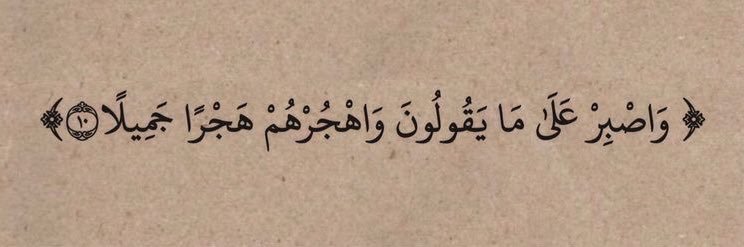 ﴿ وَاصْبِرْ عَلَىٰ مَا يَقُولُونَ وَاهْجُرْهُمْ هَجْرًا جَمِيلًا ۝١٠ ﴾